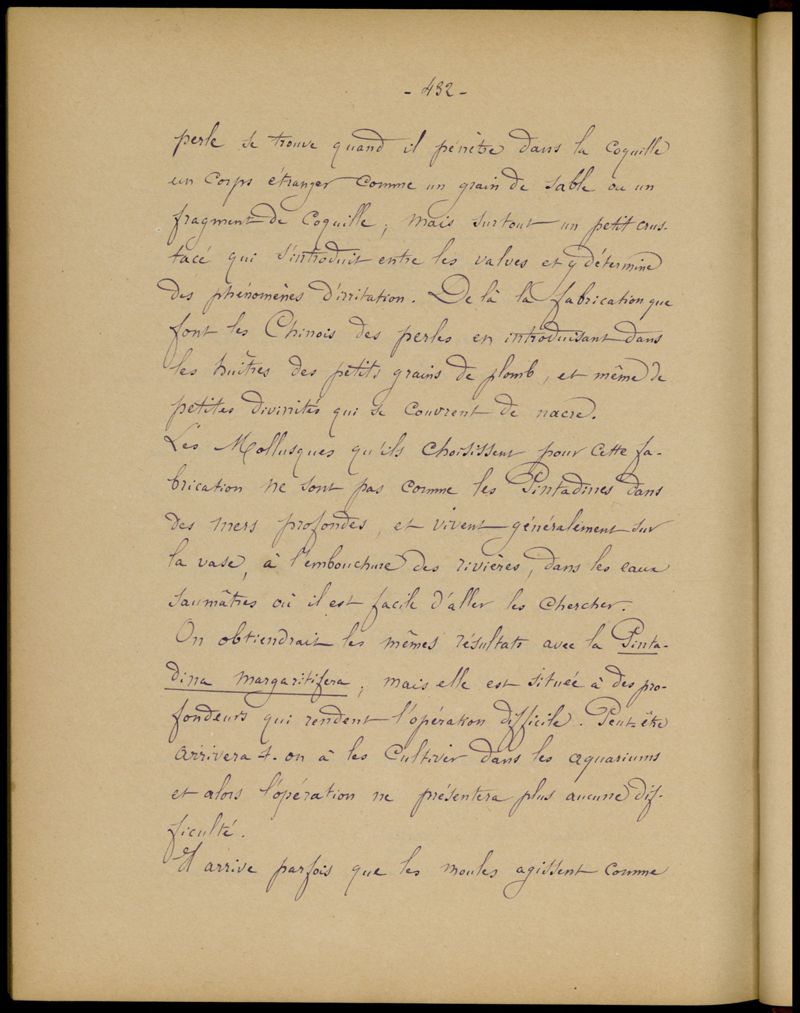 - 482 -
perle se trouve quand il pénètre dans la coquille
un corps étranger comme un grain de sable ou un
fragment de coquille, mais surtout un petit crus-
tacé qui s'introduit entre les valves et y détermine
des phénomènes d'irritation. De là la fabrication que
font les Chinois des perles en introduisant dans
les huîtres des petits grains de plomb, et même de
petites divinités qui se couvrent de nacre.
Les Mollusques qu'ils choisissent pour cette fa-
brication ne sont pas comme les Pintadines dans
des mers profondes, et vivent généralement sur
la vase, à l'embouchure des rivières, dans les eaux
saumâtres où il est facile d'aller les chercher.
On obtiendrait les mêmes résultats avec la Pinta-
dina margaritifera, mais elle est située à des pro-
fondeurs qui rendent l'opération difficile. Peut-être
arrivera-t-on à les cultiver dans les aquariums
et alors l'opération ne présentera plus aucune dif-
ficulté.
Il arrive parfois que les moules agissent comme